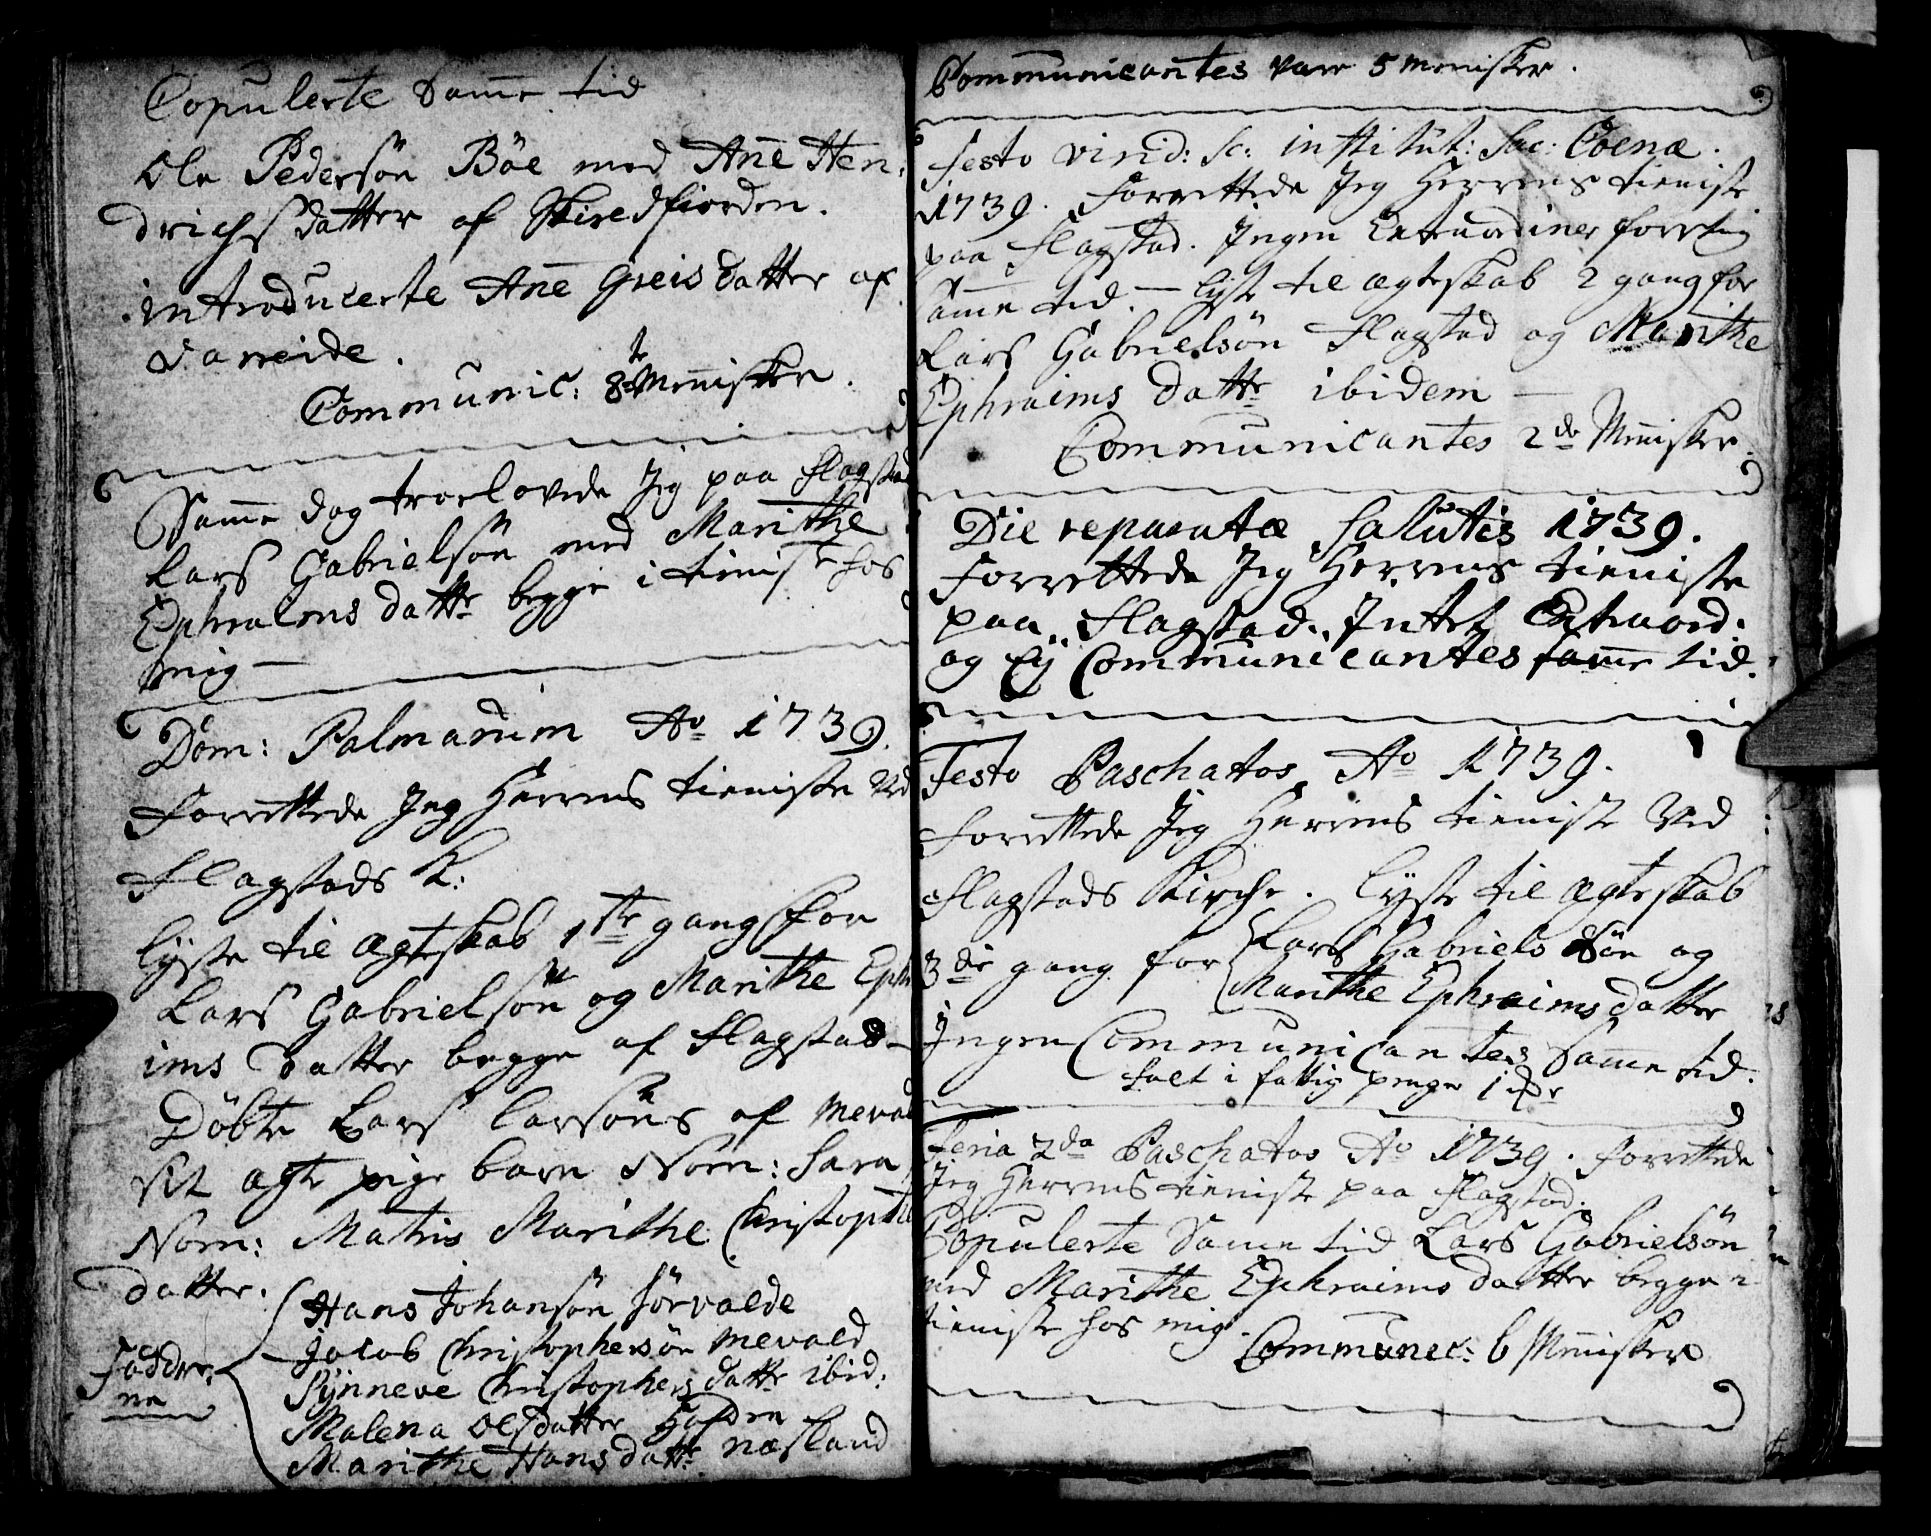 Copulerte Same tid
Ole Pedersön Böe med Ane Hen,
drichs datter af Skiredfiorden.
introducerte Ane Greis datter af
Vareide.
Communic: 8te Mennisker.
Same dag troelovede Jeg paa Flagstad
Lars Gabrielsön med Marithe
Ephraims dattr begge i tieniste hos
mig —
Dom: Palmarum Ao 1739.
Forrettede Jeg Herrens tieniste ved
Flagstads K:
lyste til ægteskab 1ste gang for
Lars Gabrielsön og Marithe Ephr
ims datter begge af Flagstad —
Döbte Lars larsöns af mevald
sit ægte pige barn Nom: Sara
Nom: Matris Marithe Christoph
datter.
Hans Johansön Sörvalde
Jacob Christophersön mevald
Synneve Christophers dattr ibid:
Faddre,
ne
Malena olsdatter
Marithe Hans dattr. næsland
Communicantes vare 5 mennisker.
Festo virid: sc: institut: Sac: Coenæ.
1739. Forrettede Jeg Herrens tieniste
paa Flagstad. Ingen Extraordiner
same tid. — lyste til ægteskab 2 gang for
Lars Gabrielsön Flagstad og Marithe
Ephraims dattr ibidem —
Communicantes 2de Mennisker.
Die reparatæ Salutis 1739.
Forrettede Jeg Herrens tieniste
paa Flagstad. Intet Extraord:
og Ej Communicantes same tid.
Festo Paschatos Ao 1739.
Forrettede Jeg Herrens tieniste Ved
Flagstads Kirche. lyste til ægteskab
3de gang for Lars Gabriels Sön og
Marithe Ephraims datter
Ingen Communicantes Same tid.
faldt i fattig penge 1
Feria 2da Paschatos Ao 1739. forrettede
Jeg Herrens tieniste paa Flagstad.
Copulerte Same tid Lars Gabrielsön
med Marithe Ephraims datter begge i
tieniste hos mig.
Communic: 6 Mennisker